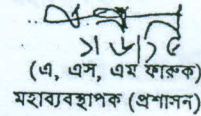 (এ, এস, এম ফারুক)
মহাব্যবস্থাপক (প্রশাসন)